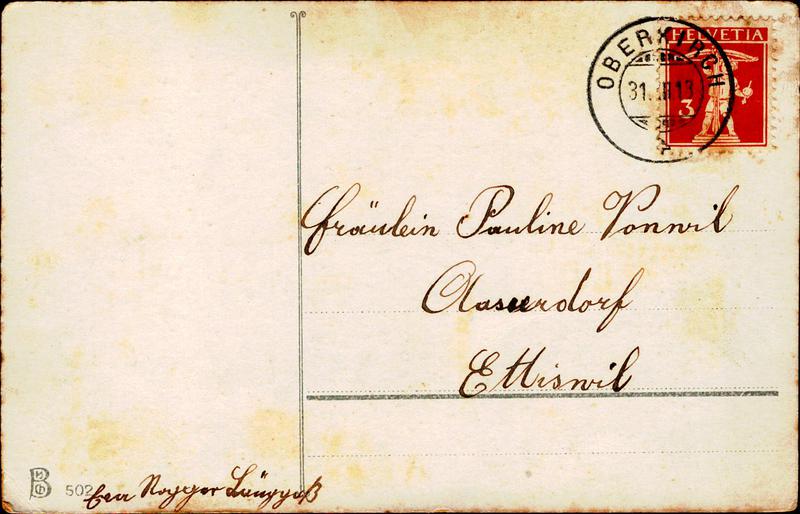 HELVETIA
3
OBERKIRCH
31. III 13
Fräulein Pauline Vonwil
Ettiswil
502
Rogger